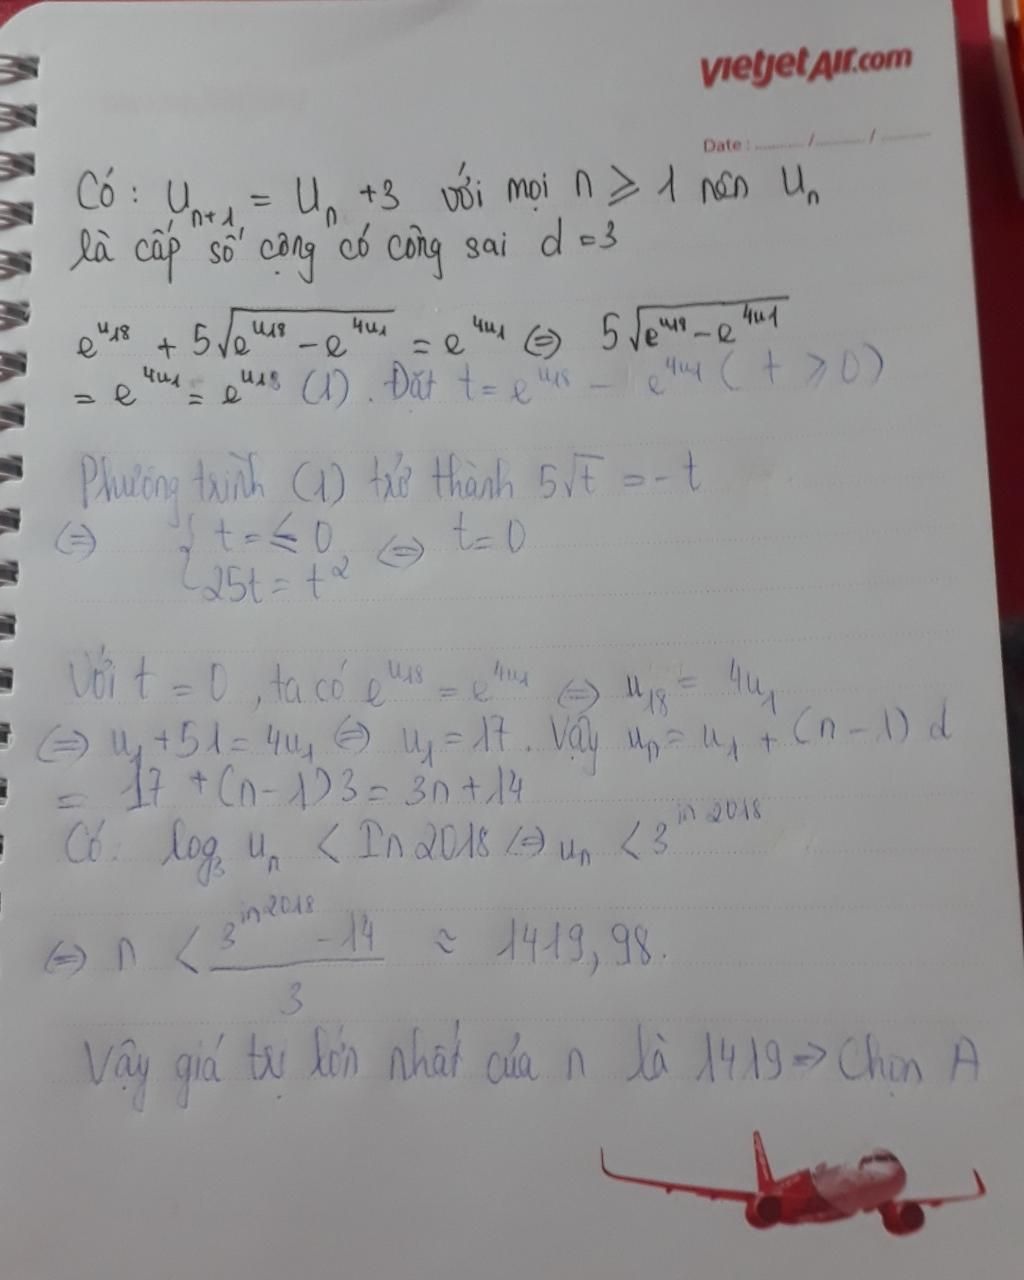 vietjetAir.com
Date : ......... / ......... / .........
Có : U_{n+1} = U_n +3 với mọi n ⩾ 1 nên U_n
là cấp số cộng có công sai d = 3
e^{u18} + 5√(e^{u18} - e^{4u1}) = e^{4u1} ⇔ 5√(e^{u18} - e^{4u1})
= e^{4u1} = e^{u18} (1) . Đặt t = e^{u18} - e^{4u1} ( t ⩾ 0)
Phương trình (1) trở thành 5√t = - t
⇔ { t = ≤ 0 ⇔ t = 0
{ 25t = t²
Với t = 0 , ta có e^{u18} = e^{4u1} ⇔ u_18 = 4u_1
⇔ u_1 + 51 = 4u_1 ⇔ u_1 = 17 . Vậy u_n = u_1 + (n - 1) d
= 17 + (n - 1) 3 = 3n + 14
Có : log_3 u_n < In 2018 ⇔ u_n < 3^{in 2018}
⇔ n < (3^{in 2018} - 14)/3 ≈ 1419,98.
Vậy giá trị lớn nhất của n là 1419 => Chọn A